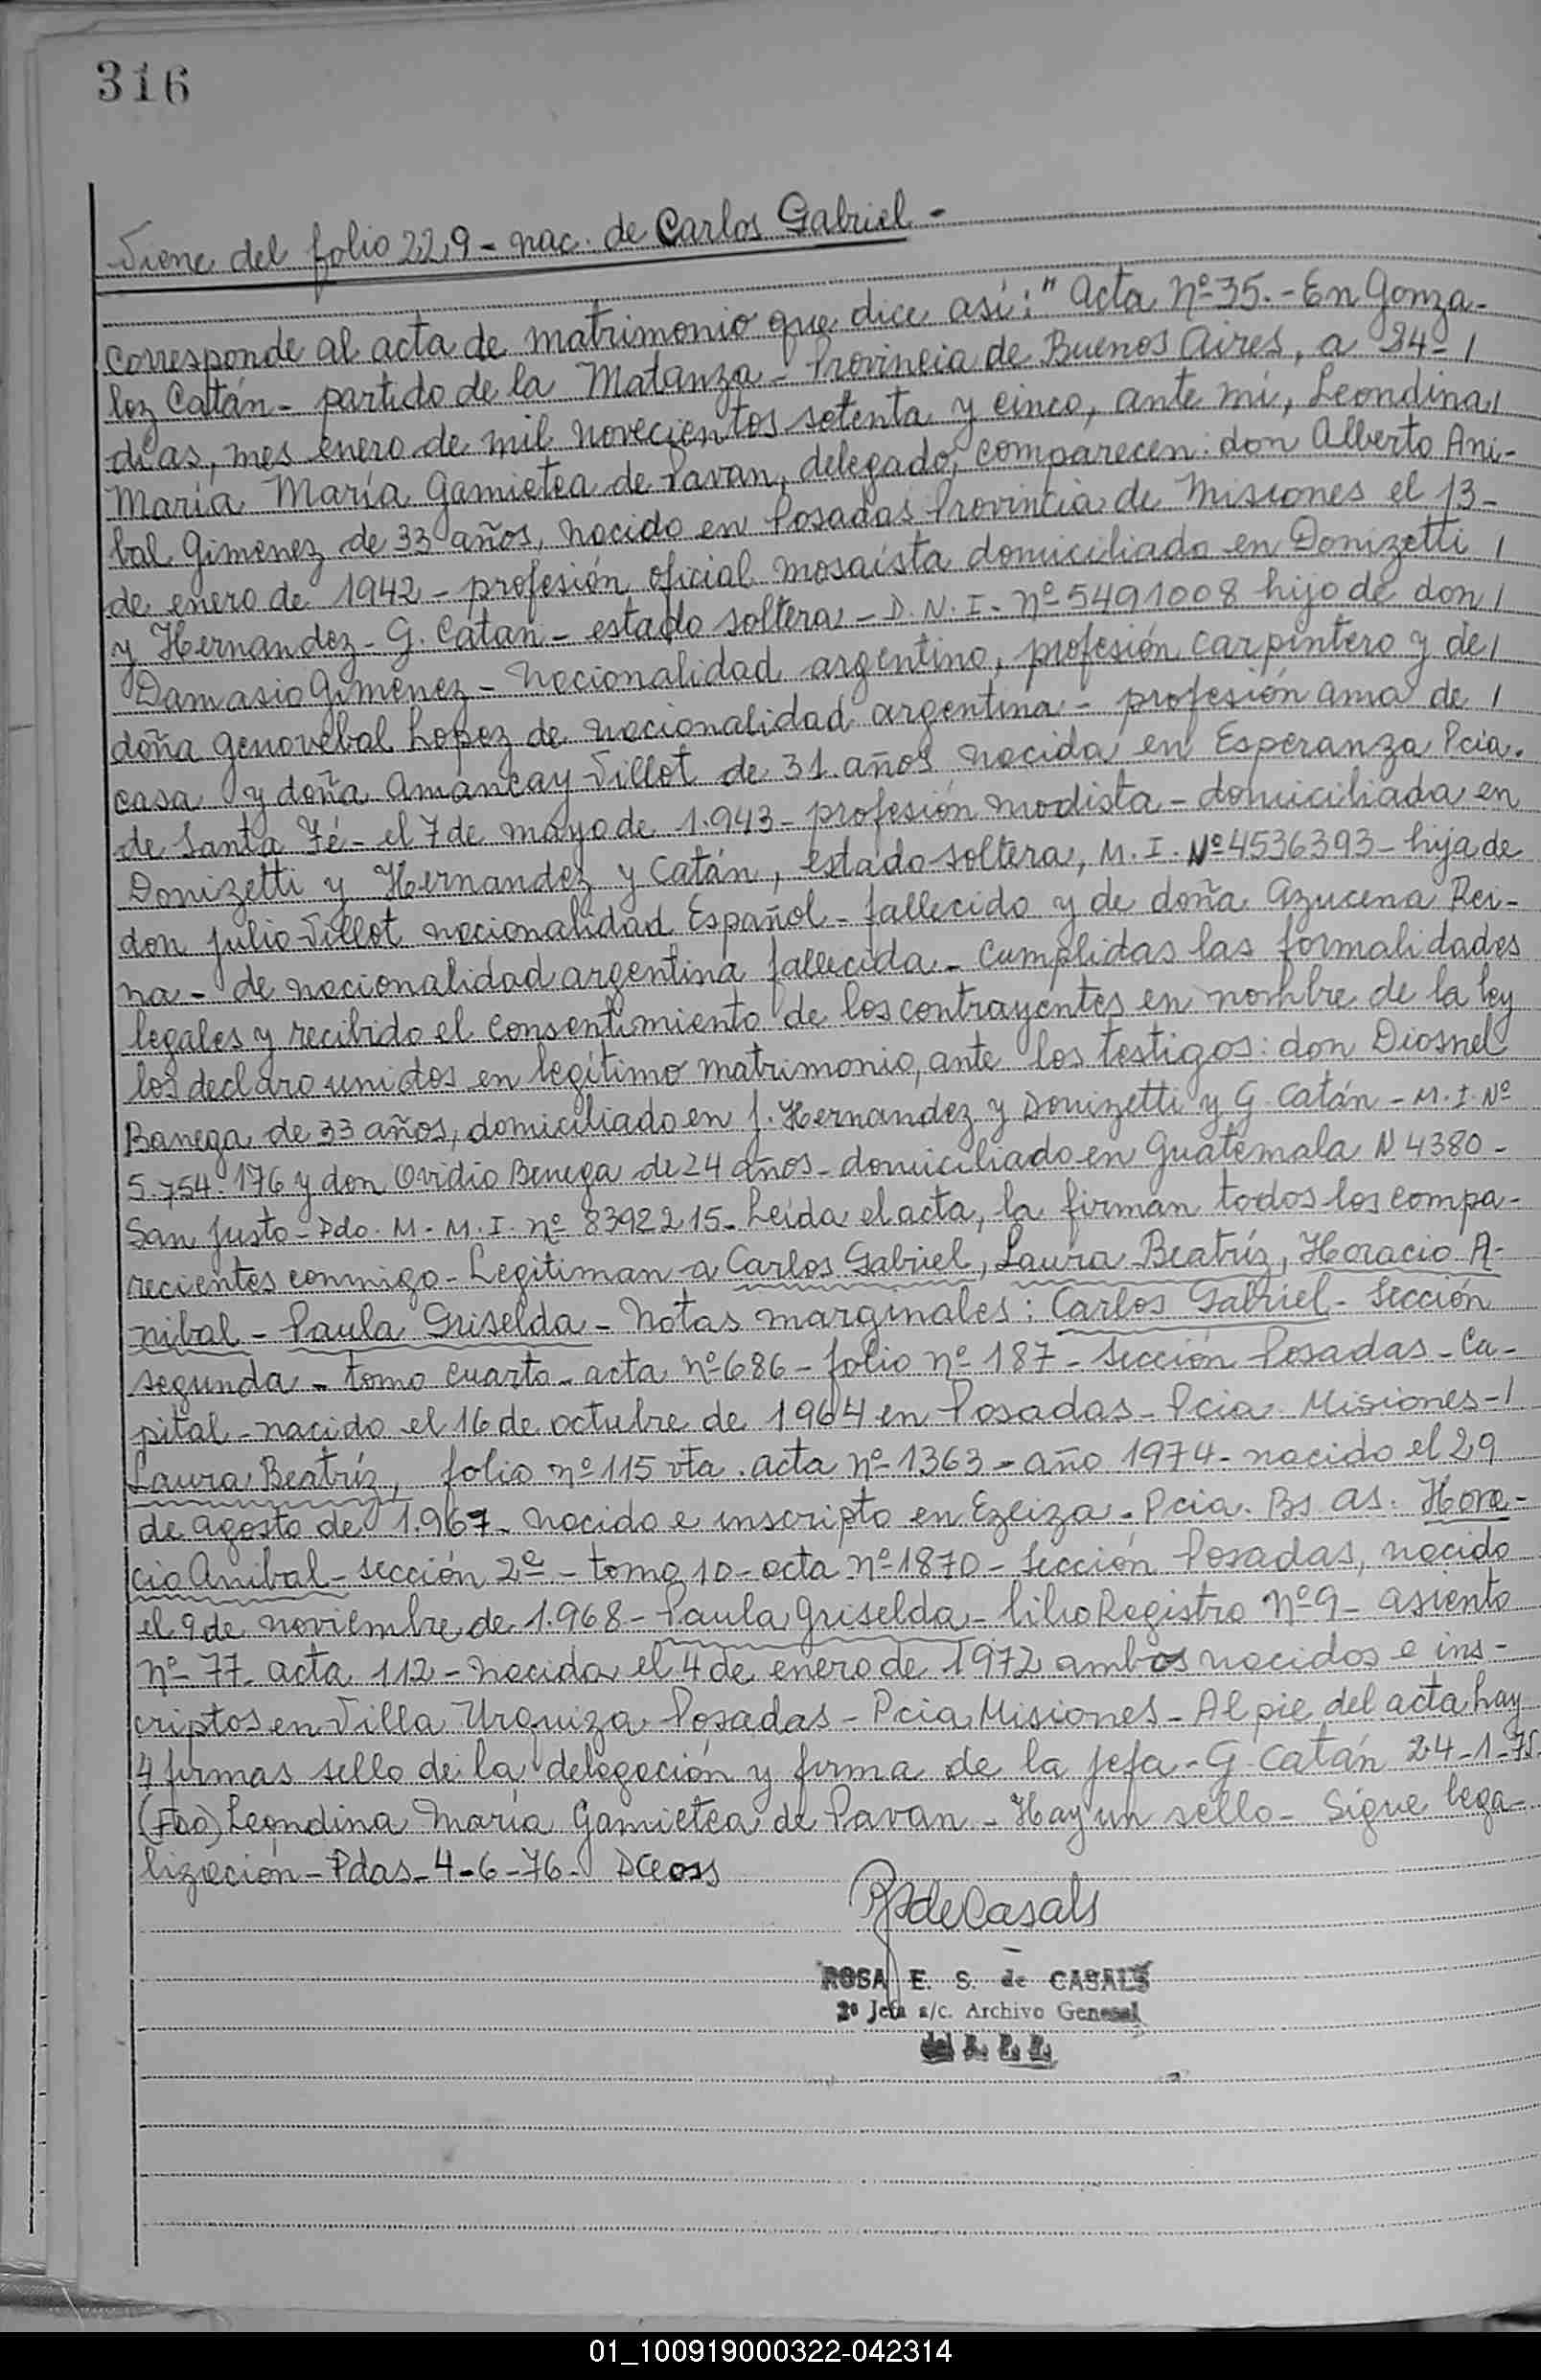 316
Viene del folio 229 - nac. de Carlos Gabriel -
corresponde al acta de matrimonio que dice así: " Acta Nº 35. - En Gonza-
lez Catán - partido de la Matanza - Provincia de Buenos Aires, a 24 - /
dias, mes enero de mil novecientos setenta y cinco, ante mi, Leondina /
María María Gamietea de Pavan, delegado, comparecen: don Alberto Ani-
bal Gimenez de 33 años, nacido en Posadas Provincia de Misiones el 13-
de enero de 1942 - profesión oficial mosaísta domiciliado en Donizetti /
y Hernandez - G. Catan - estado soltera - D. N. I. Nº 5491008 hijo de don /
Damasio Gimenez - nacionalidad argentino, profesión carpintero y de /
doña Genovebal Lopez de nacionalidad argentina - profesión ama de /
casa y doña Amancay Villot de 31 años nacida en Esperanza Pcia.
de Santa Fé - el 7 de mayo de 1.943 - profesión modista - domiciliada en
Donizetti y Hernandez y Catán, estado soltera, M. I. Nº 4536393 - hija de
don Julio Villot nacionalidad Español - fallecido y de doña Azucena Rei-
na - de nacionalidad argentina fallecida - Cumplidas las formalidades
legales y recibido el consentimiento de los contrayentes en nombre de la ley
los declaro unidos en legítimo matrimonio, ante los testigos: don Diosnel
Banega de 33 años, domiciliado en J. Hernandez y Donizetti y G. Catán - M. I. Nº
5.754.176 y don Ovidio Benega de 24 años - domiciliado en Guatemala N 4380 -
San Justo - Pdo. M - M. I. nº 8392215 - Leída el acta, la firman todos los compa-
recientes conmigo - Legitiman a Carlos Gabriel, Laura Beatríz, Horacio A-
nibal - Paula Griselda - Notas marginales: Carlos Gabriel - Sección
segunda - tomo cuarto - acta nº 686 - folio nº 187 - Sección Posadas - Ca-
pital - nacido el 16 de octubre de 1964 en Posadas - Pcia Misiones - /
Laura Beatríz, folio nº 115 vta. acta nº 1363 - año 1974 - nacido el 29
de agosto de 1.967 - nacido e inscripto en Ezeiza - Pcia. Bs. As. Hora-
cio Anibal - sección 2ª - tomo 10 - acta nº 1870 - Sección Posadas, nacido
el 9 de noviembre de 1.968 - Paula Griselda - libro Registro nº 9 - asiento
nº 77 - acta 112 - nacida el 4 de enero de 1972 ambos nacidos e ins-
criptos en Villa Urquiza Posadas - Pcia Misiones - Al pie del acta hay
4 firmas sello de la delegación y firma de la Jefa - G. Catán 24-1-75.
(Fdo) Leondina María Gamietea de Pavan - Hay un sello - Sigue lega-
lización - Pdas - 4-6-76 -
de Casals
ROSA E. S. de CASALS
2º Jefa a/c. Archivo General
del R. P. P.
01_100919000322-042314